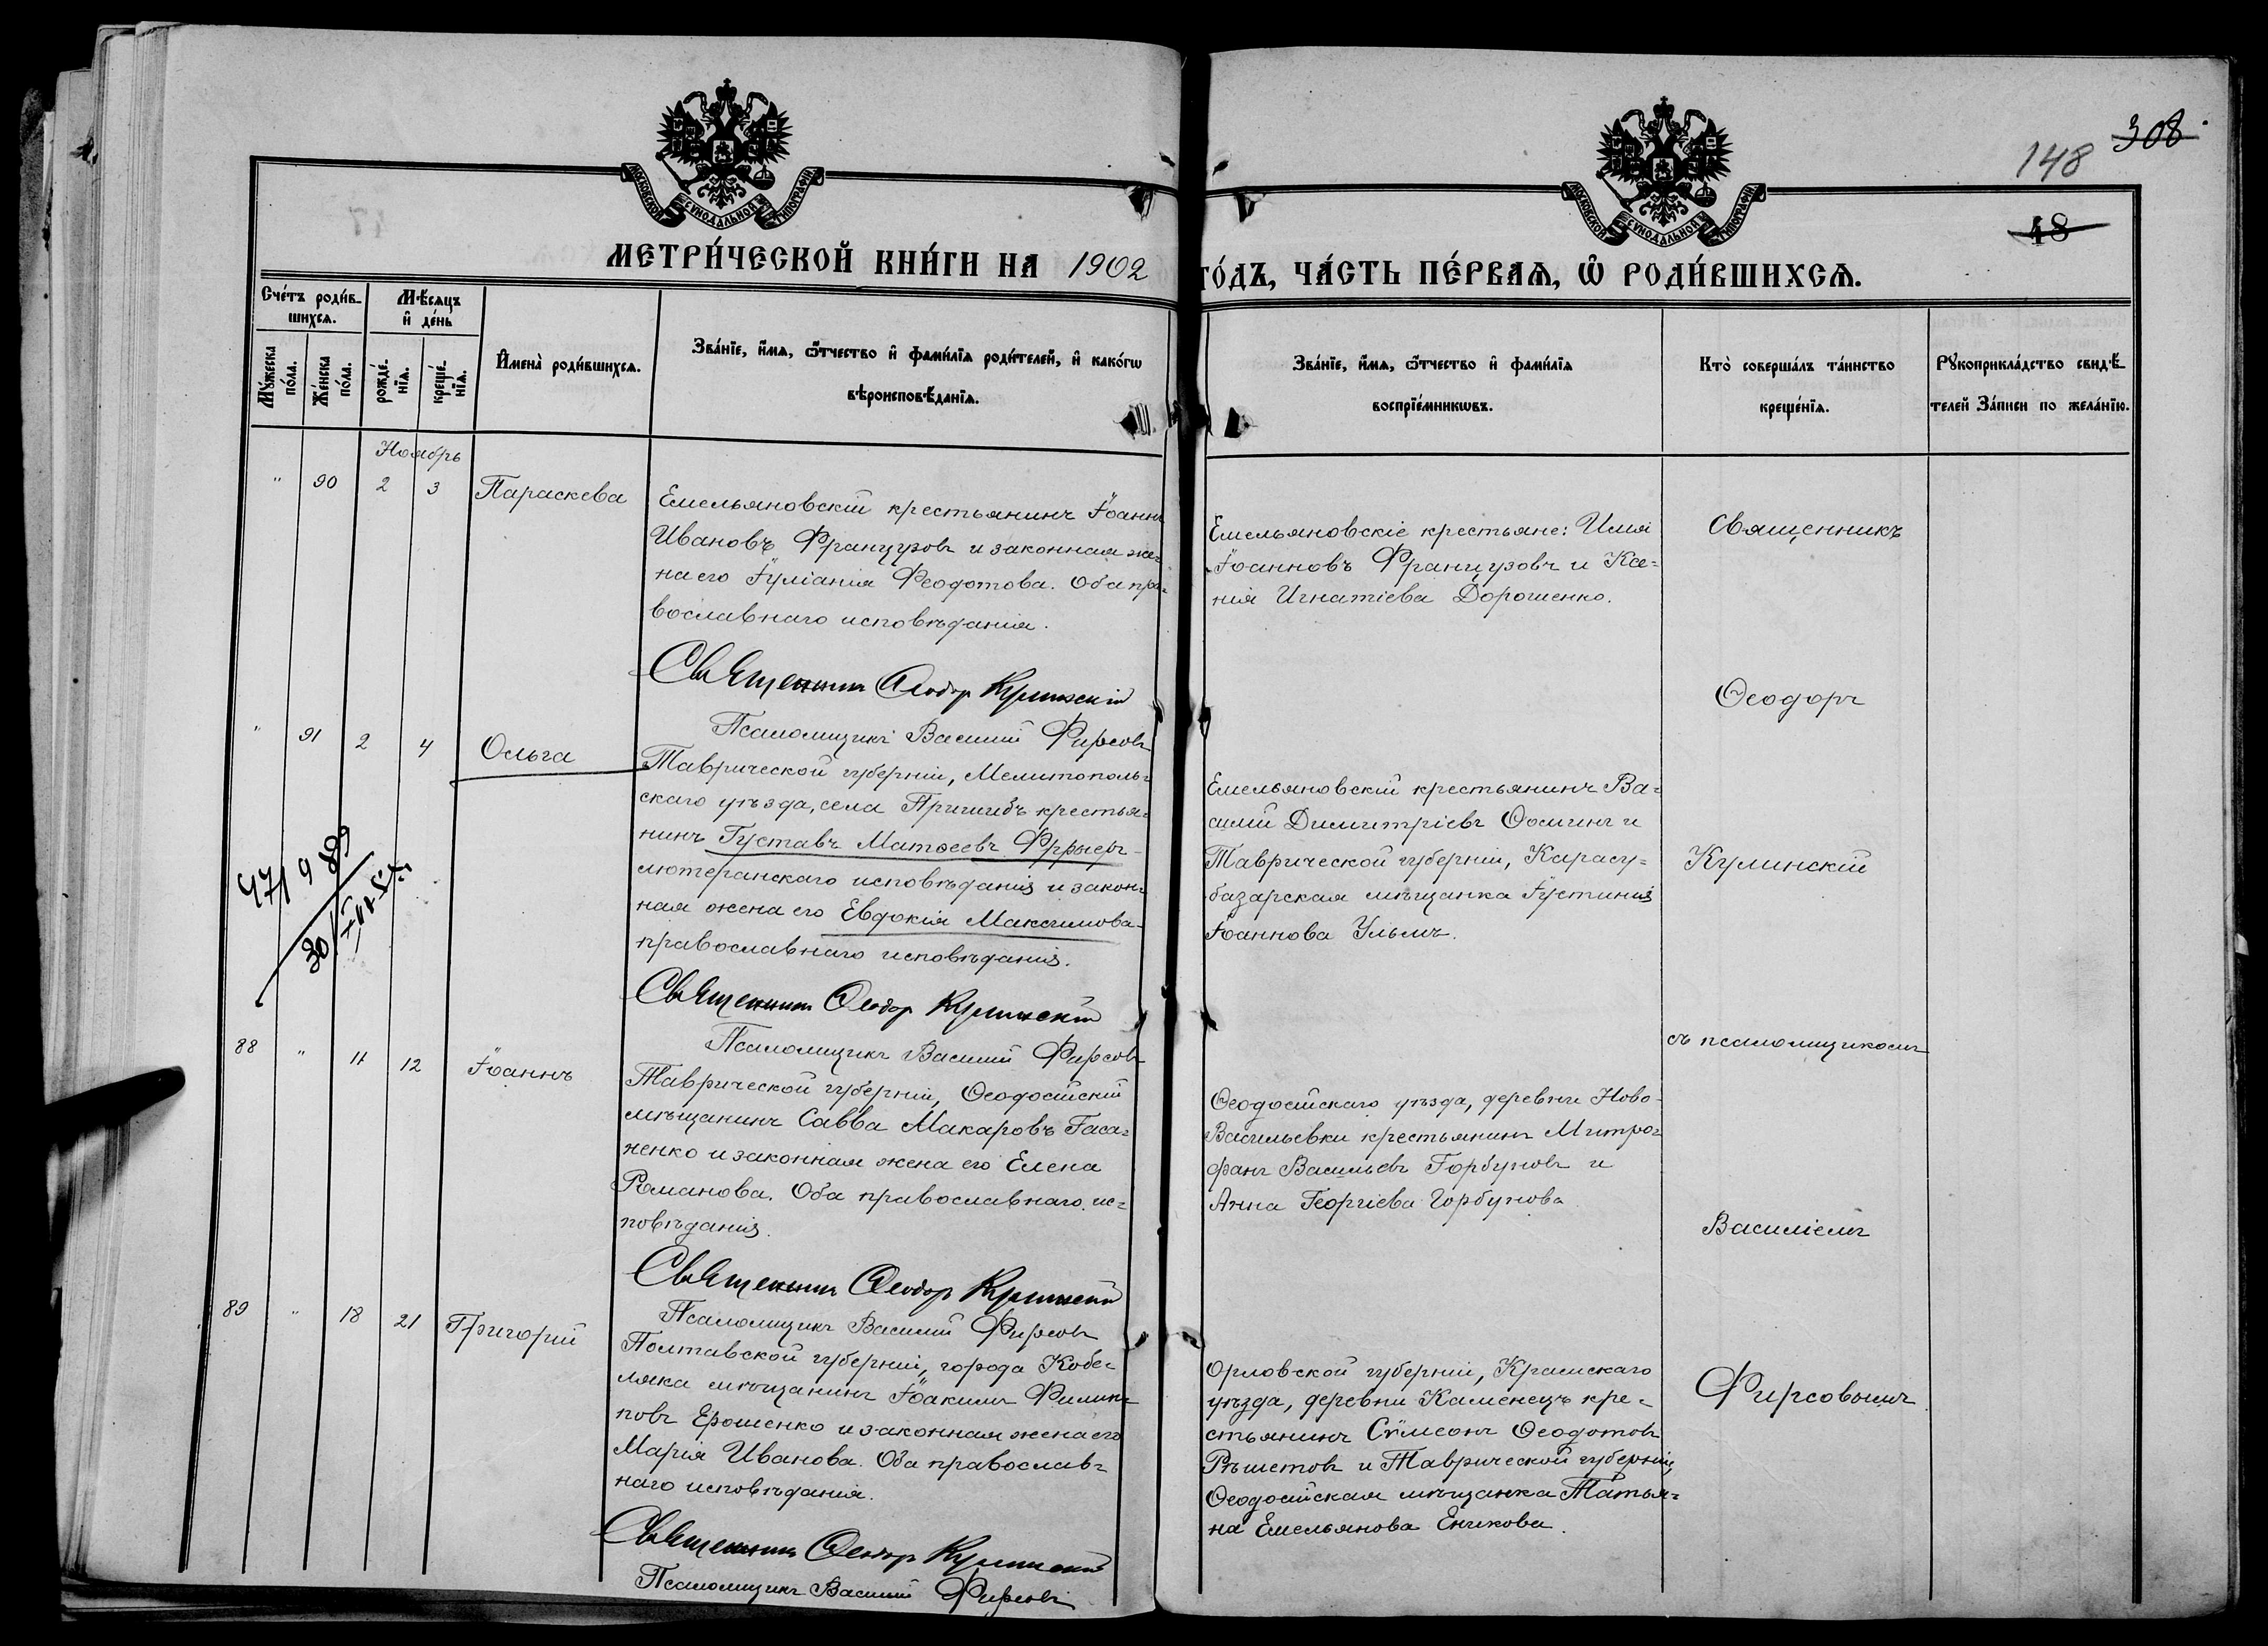 308
148
48
МОСКОВСКОЙ СѴНОДАЛЬНОЙ ТИПОГРАФІИ
МОСКОВСКОЙ СѴНОДАЛЬНОЙ ТИПОГРАФІИ
МЕТРИ́ЧЕСКОЙ КНИ́ГИ НА 1902
ГО́ДЪ, ЧА́СТЬ ПЕ́РВАѦ, Ѽ РОДИ́ВШИХСѦ.
Сче́тъ роди́в-
шихсѧ.
Мꙋ́жеска по́ла.
Же́нска по́ла.
Мѣ́сѧцъ
и҆ де́нь
рожде́-
нїѧ.
креще́-
нїѧ.
И҆мена̀ роди́вшихсѧ.
Зва́нїе, и҆́мѧ, ѻ҆́тчество и҆ фами́лїѧ роди́телей, и҆ како́гѡ
вѣроисповѣ́данїѧ.
Зва́нїе, и҆́мѧ, ѻ҆́тчество и҆ фами́лїѧ
воспрїе́мникѡвъ.
Кто̀ соверша́лъ та́инство
креще́нїѧ.
Рꙋкоприкла́дство свидѣ́-
телей За́писи по жела́нїю.
Ноябрь
" 90 2 3 Параскева
Емельяновскій крестьянинъ Іоаннъ
Ивановъ Французовъ и законная же-
на его Іуліанія Феодотова. Оба пра-
вославнаго исповѣданія.
Священникъ Ѳеодоръ Кулинскій
Псаломщикъ Василій Фирсовъ
Емельяновскіе крестьяне: Илія
Іоанновъ Французовъ и Ксе-
нія Игнатіева Дорошенко.
Священникъ
Ѳеодоръ
Кулинскій
съ псаломщикомъ
Василіемъ
Фирсовымъ
" 91 2 4 Ольга
Таврической губерніи, Мелитополь-
скаго уѣзда, села Пришибъ крестья-
нинъ Густавъ Матѳеевъ
лютеранскаго исповѣданія и закон-
ная жена его Евдокія Максимова
православнаго исповѣданія.
Священникъ Ѳеодоръ Кулинскій
Псаломщикъ Василій Фирсовъ
Емельяновскій крестьянинъ Ва-
силій Димитріевъ Ѳоминъ и
Таврической губерніи, Карасу-
базарская мѣщанка Іустинія
Іоаннова Ульмъ.
88 " 11 12 Іоаннъ
Таврической губерніи, Ѳеодосійскій
мѣщанинъ Савва Макаровъ Гаса-
ненко и законная жена его Елена
Романова. Оба православнаго ис-
повѣданія.
Священникъ Ѳеодоръ Кулинскій
Псаломщикъ Василій Фирсовъ
Ѳеодосійскаго уѣзда, деревни Ново-
Васильевки крестьянинъ Митро-
фанъ Васильевъ Горбуновъ и
Анна Георгіева Горбунова
89 " 18 21 Григорій
Полтавской губерніи, города Кобе-
ляка мѣщанинъ Іоакимъ Филип-
повъ Ерошенко и законная жена его
Марія Иванова. Оба православ-
наго исповѣданія.
Священникъ Ѳеодоръ Кулинскій
Псаломщикъ Василій Фирсовъ
Орловской губерніи, Крамскаго
уѣзда, деревни Каменецъ кре-
стьянинъ Сѵмеонъ Ѳеодотовъ
Рѣшетовъ и Таврической губерніи,
Ѳеодосійская мѣщанка Татья-
на Емельянова Еникова.